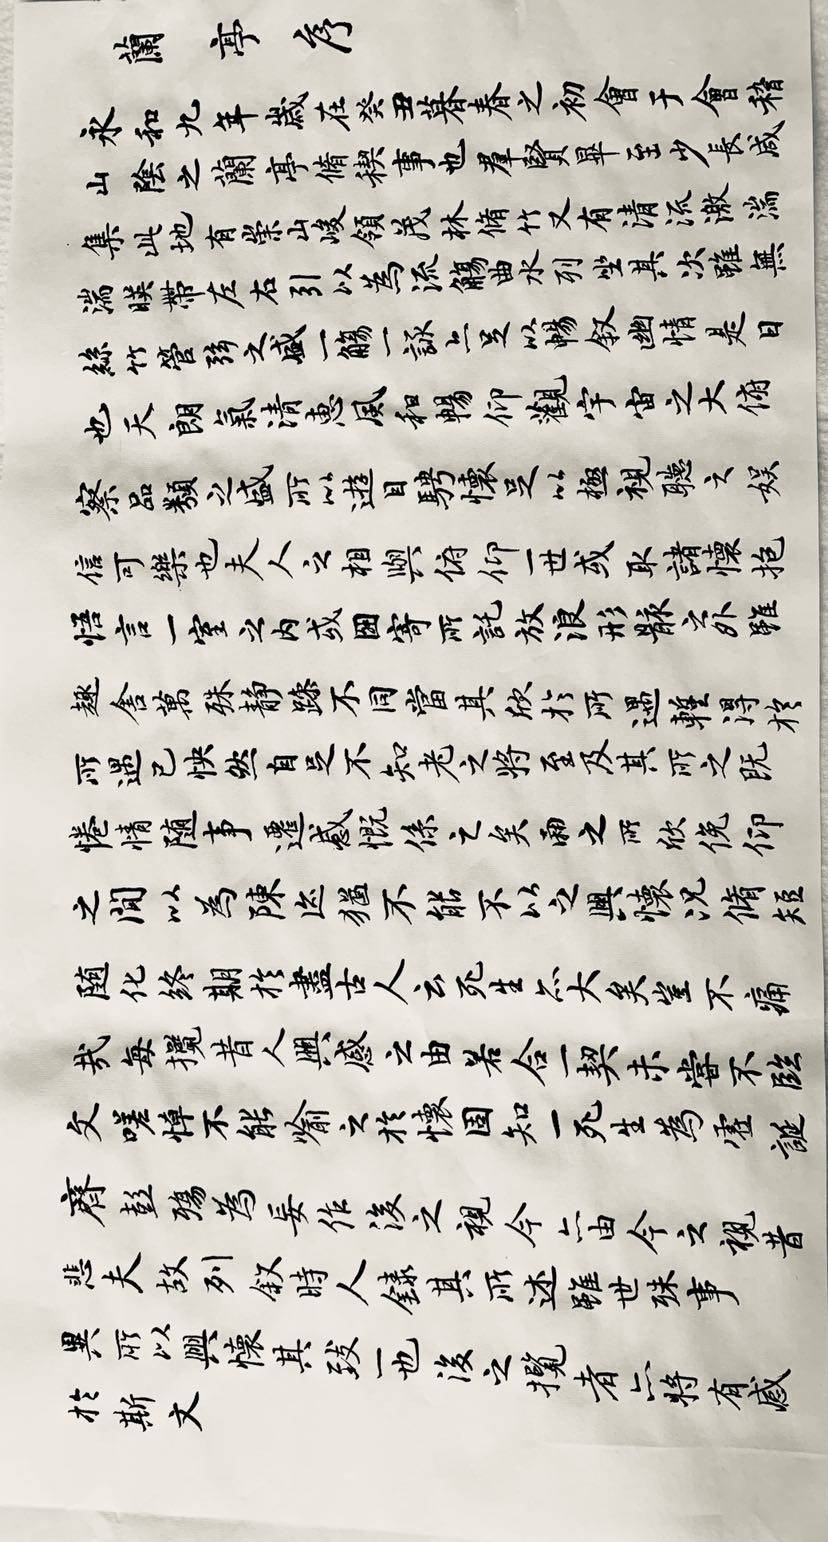 蘭亭序
永和九年歲在癸丑暮春之初會于會稽
山陰之蘭亭脩稧事也羣賢畢至少長咸
集此地有崇山峻領茂林脩竹又有清流激湍
湍暎帶左右引以為流觴曲水列坐其次雖無
絲竹管弦之盛一觴一詠亦足以暢叙幽情是日
也天朗氣清惠風和暢仰觀宇宙之大俯
察品類之盛所以遊目騁懷足以極視聽之娛
信可樂也夫人之相與俯仰一世或取諸懷抱
悟言一室之內或因寄所託放浪形骸之外雖
趣舍萬殊静躁不同當其欣於所遇輙得於
所遇已怏然自足不知老之將至及其所之既
惓情随事遷感慨係之矣向之所欣俛仰
之間以為陳迹猶不能不以之興懷況脩短
随化終期於盡古人云死生亦大矣豈不痛
哉每攬昔人興感之由若合一契未嘗不臨
文嗟悼不能喻之於懷固知一死生為虛誕
齊彭殤為妄作後之視今亦由今之視昔
悲夫故列叙時人錄其所述雖世殊事
異所以興懷其致一也後之攬者亦將有感
於斯文